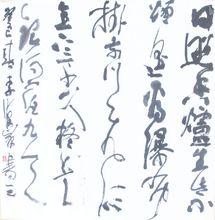 日照香爐生紫
烟遥看瀑布
挂前川飛流
直下三千尺疑是
銀河落九天
癸巳